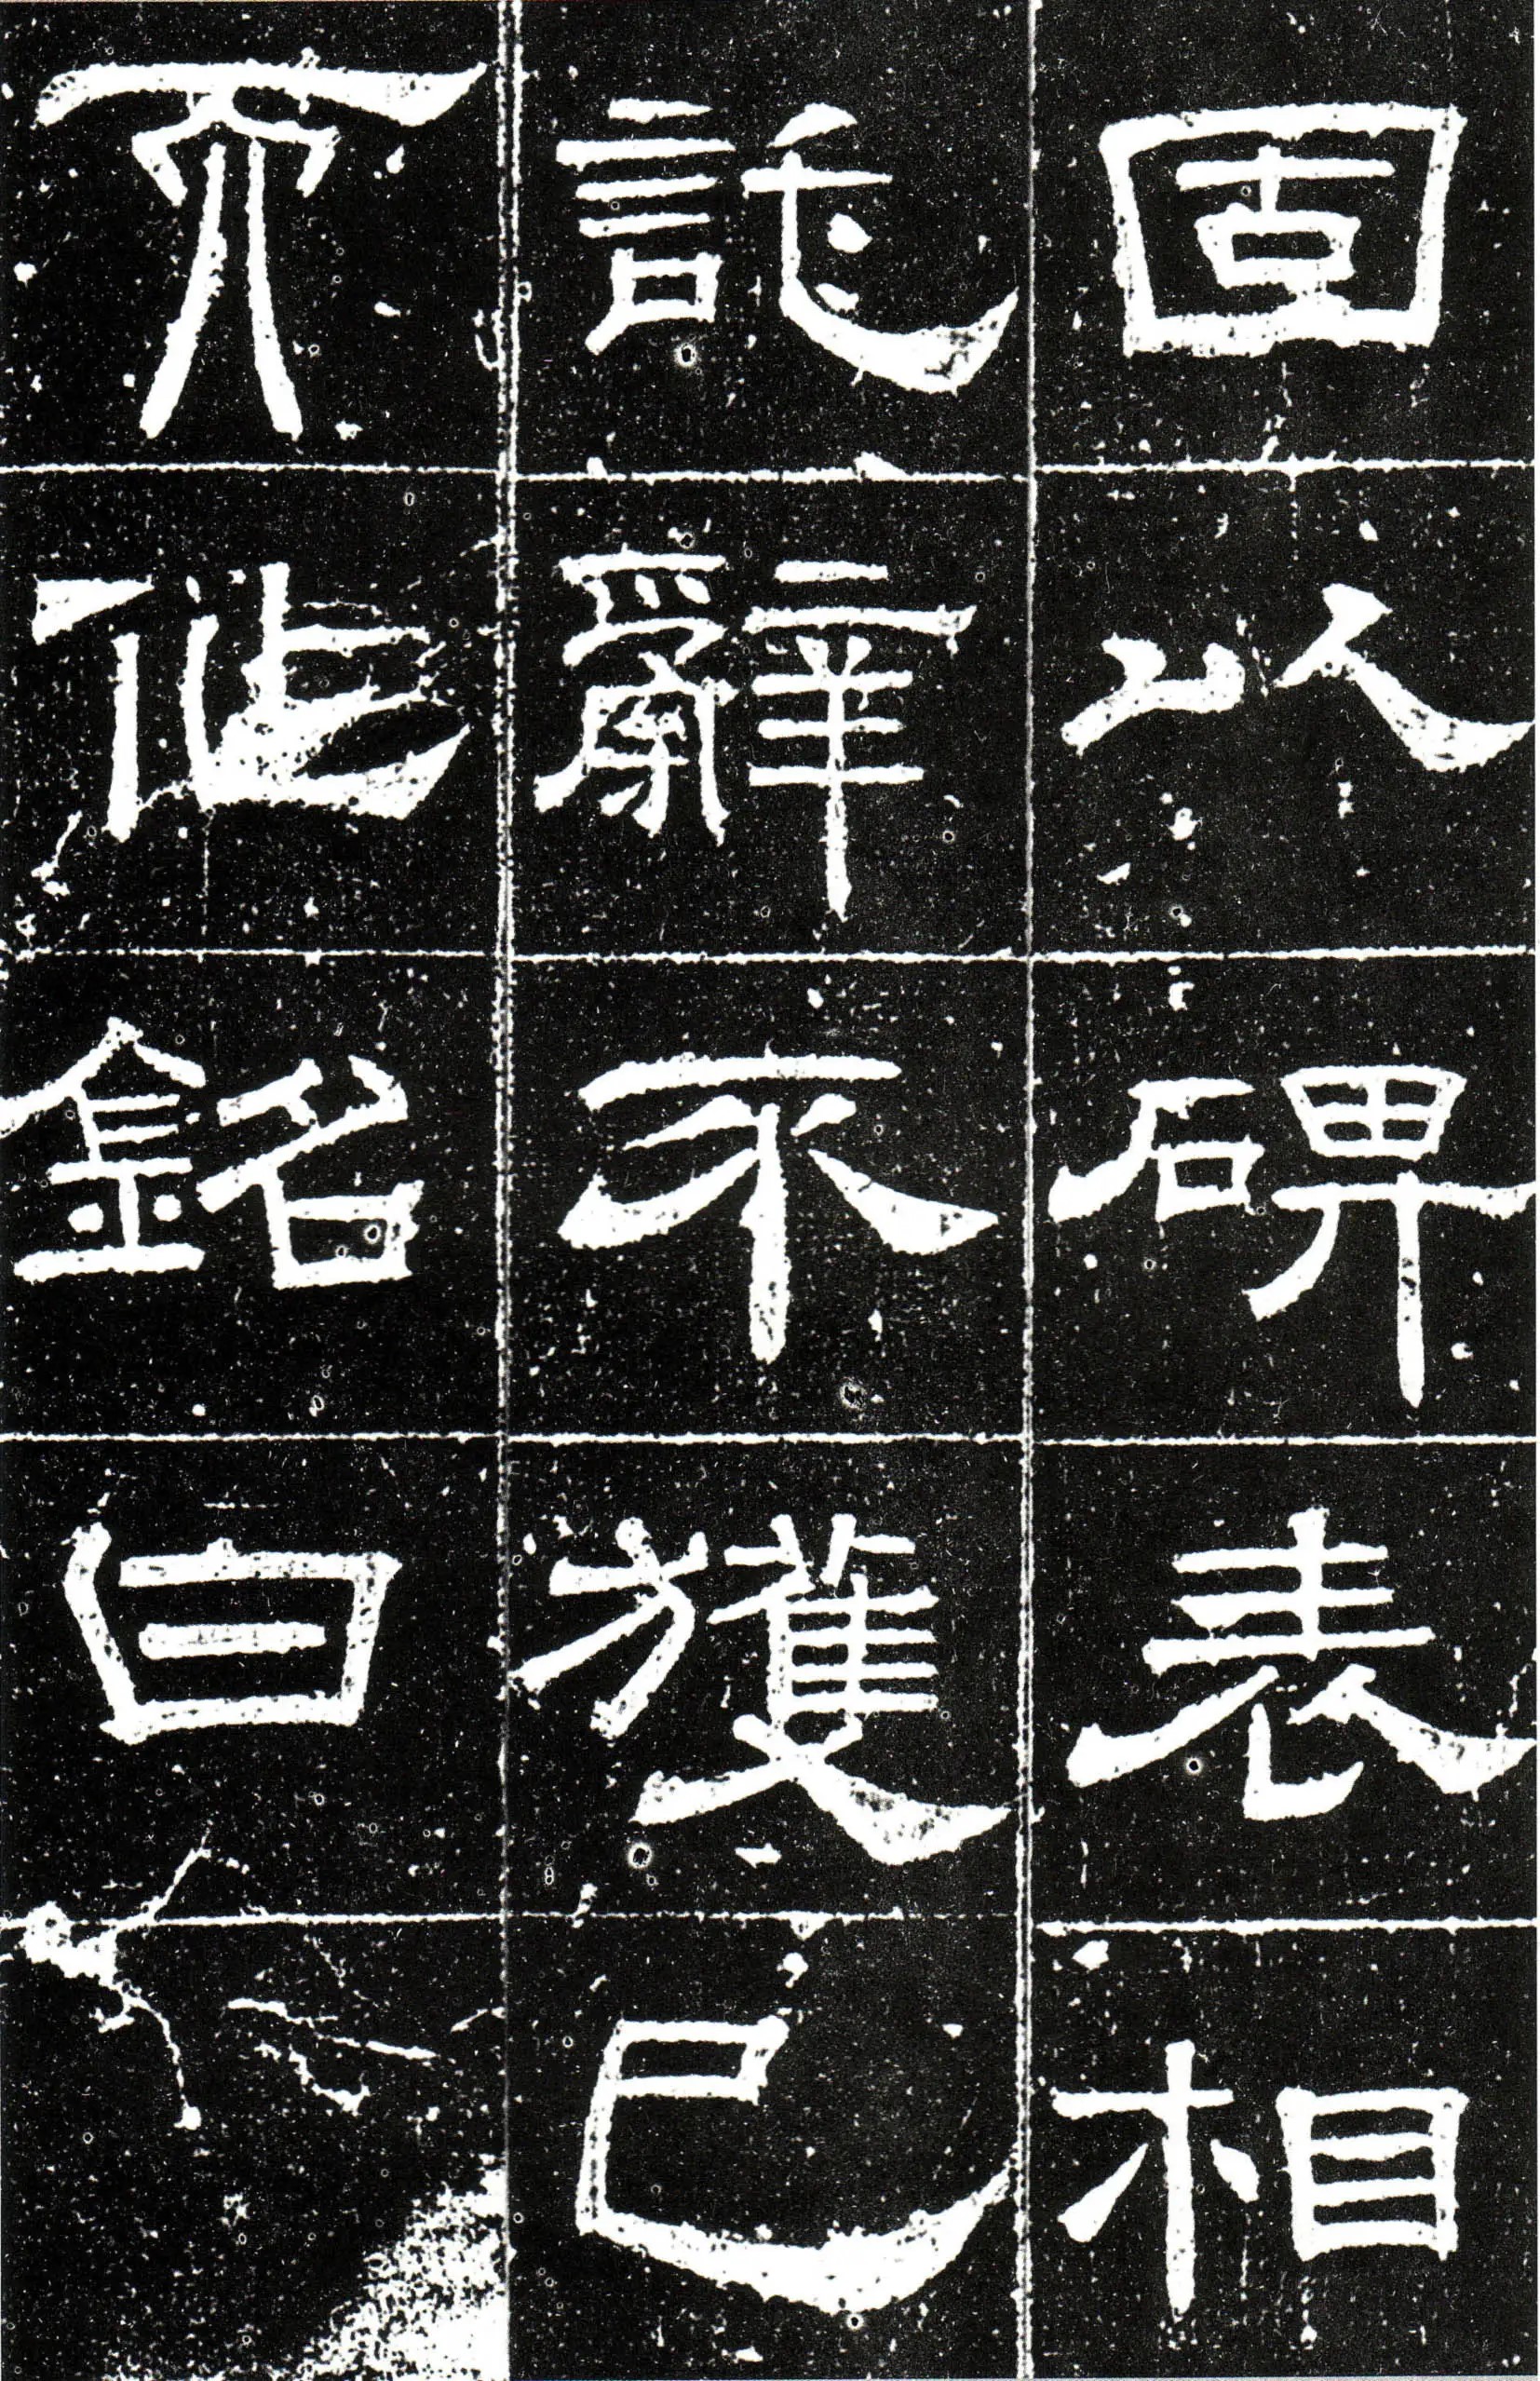 固以碑表相
託辭不獲已
而作銘曰